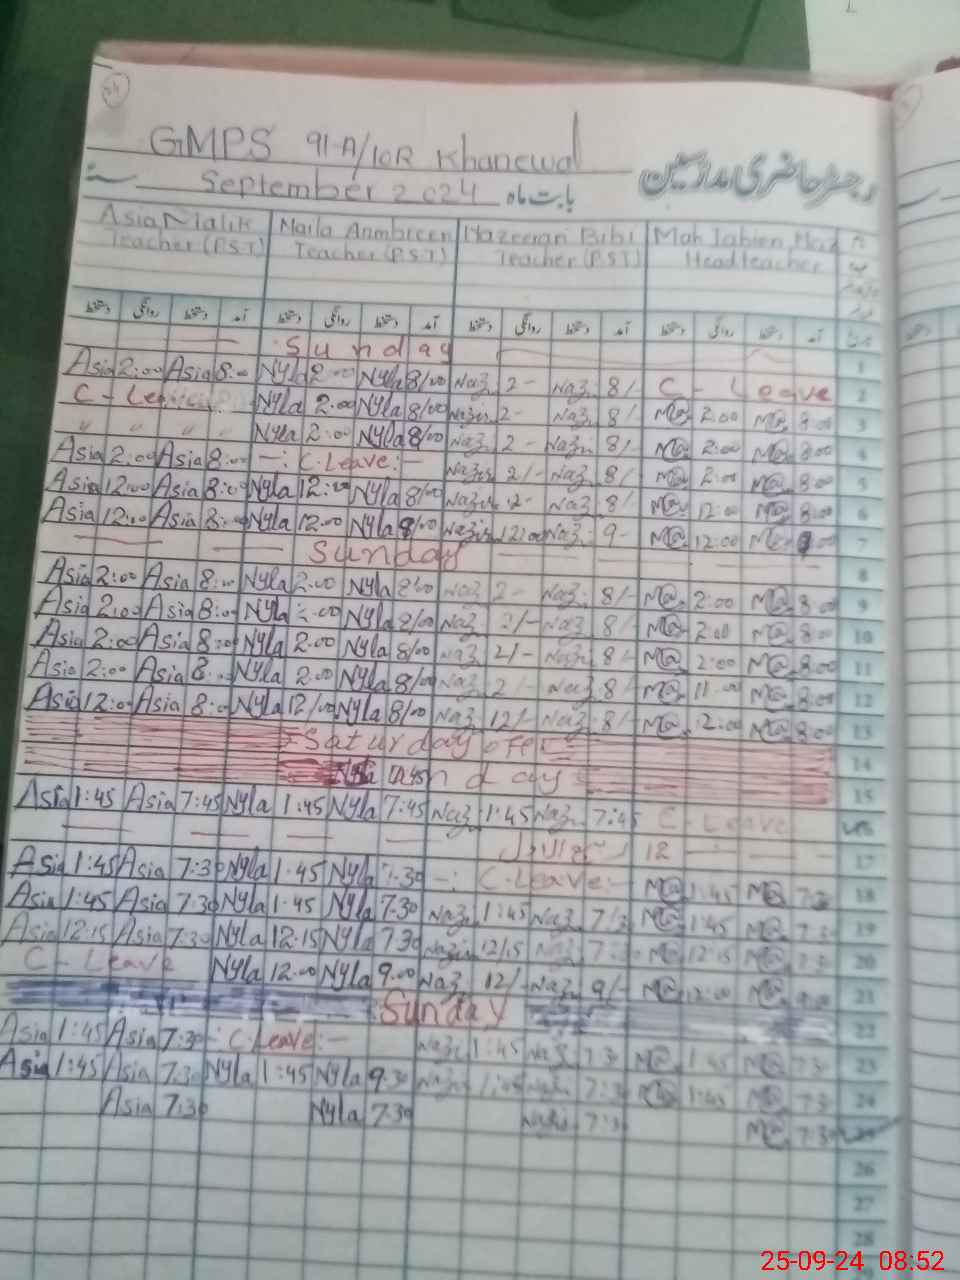 GMPS 91-A/10R Khanewal
رجسٹر حاضری مدرسین
September 2024 بابت ماہ
Asia Malik Naila Ambreen Nazeeran Bibi Mah Jabien
Teacher (P.S.T) Teacher (P.S.T) Teacher (P.S.T) Headteacher
دستخط روانگی دستخط آمد دستخط روانگی دستخط آمد دستخط روانگی دستخط آمد دستخط روانگی دستخط آمد
Sunday 1
Asia 2:00 Asia 8:00 Nyla 2:00 Nyla 8/00 Naz. 2- Naz. 8/ C- Leave 2
C- Leave Nyla 2.00 Nyla 8/00 2- Naz. 8/ M@ 2:00 M@ 8:00 3
" " " " Nyla 2:00 Nyla 8/00 Naz. 2- Naz. 8/- M@ 2:00 M@ 8:00 4
Asia 2:00 Asia 8:00 -: C.Leave:- 2/- Naz. 8/ M@ 2:00 M@ 8:00 5
Asia 12:00 Asia 8:00 Nyla 12:00 Nyla 8/00 12- Naz. 8/- M@ 12:00 M@ 8:00 6
Asia 12:00 Asia 8:00 Nyla 12.00 Nyla 8/00 12:00 Naz. 9- M@ 12:00 7
Sunday 8
Asia 2:00 Asia 8:00 Nyla 2:00 Nyla 8/00 Naz. 2- Naz. 8/- M@ 2:00 M@ 8:00 9
Asia 2:00 Asia 8:00 Nyla 2:00 Nyla 8/00 Naz. 2/- Naz. 8/- M@ 2:00 M@ 8:00 10
Asia 2:00 Asia 8:00 Nyla 2.00 Nyla 8/00 Naz. 2/- 8/- M@ 2:00 M@ 8:00 11
Asia 2:00 Asia 8:00 Nyla 2:00 Nyla 8/00 Naz. 2/- Naz. 8/- M@ 11:00 M@ 8:00 12
Asia 12:00 Asia 8:00 Nyla 12/00 Nyla 8/00 Naz. 12/- Naz. 8/- M@ 12:00 M@ 8:00 13
Saturday off 14
nday 15
Asia 1:45 Asia 7:45 Nyla 1:45 Nyla 7:45 Naz. 1:45 Naz. 7:45 C- LEAVE 16
12 17
Asia 1:45 Asia 7:30 Nyla 1:45 Nyla 7:30 -: C.Leave:- M@ 1:45 M@ 7:30 18
Asia 1:45 Asia 7:30 Nyla 1:45 Nyla 7:30 Naz. 1:45 Naz. 7:3 M@ 1:45 M@ 7:30 19
Asia 12:15 Asia 7:30 Nyla 12:15 Nyla 7.30 12/15 Naz. M@ 12:15 M@ 7:30 20
C- Leave Nyla 12.00 Nyla 9.00 Naz. 12/- Naz. 9/- M@ 12:00 M@ 9:00 21
Sunday 22
Asia 1:45 Asia 7:30 -: C.Leave:- 1:45 Naz. 7:30 M@ 1:45 M@ 7:30 23
Asia 1:45 Asia 7:30 Nyla 1:45 Nyla 9.30 7:30 M@ 1:45 M@ 7:30 24
Asia 7:30 Nyla 7.30 7:30 M@ 7:30 25
26
27
28
25-09-24 08:52